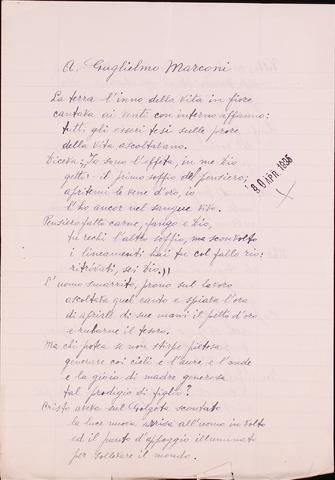 A Guglielmo Marconi
La terra l'inno della vita in fiore
cantava ai venti con interno affanno:
tutti gli esseri tesi sulle prore
della vita ascoltavano.
Diceva: Io sono l'offeta, in me Dio
gettò il primo soffio del pensiero;
apritemi le vene d'oro, io
l'ho ancor nel sangue vivo.
30 APR. 1936
Pensiero fatto carne, fango e Dio,
tu rechi l'altro soffio, ma sconvolto
i lineamenti hai tu col fallo rio:
ritrovati, sei Dio.))
L'uomo smarrito, prono sul lavoro
ascoltava quel canto e spiava l'ora
di aprirle di sue mani il petto d'oro
e rubarne il tesoro.
Ma chi potea se non stirpe pietosa
generare coi cieli e l'aure e l'onde
e la gioia di madre generosa
tal prodigio di figlio?
Cristo aveva sul Golgota scontato
la sua nuova all'uomo in volto
ed il punto d'appoggio illuminato
per sollevare il mondo.